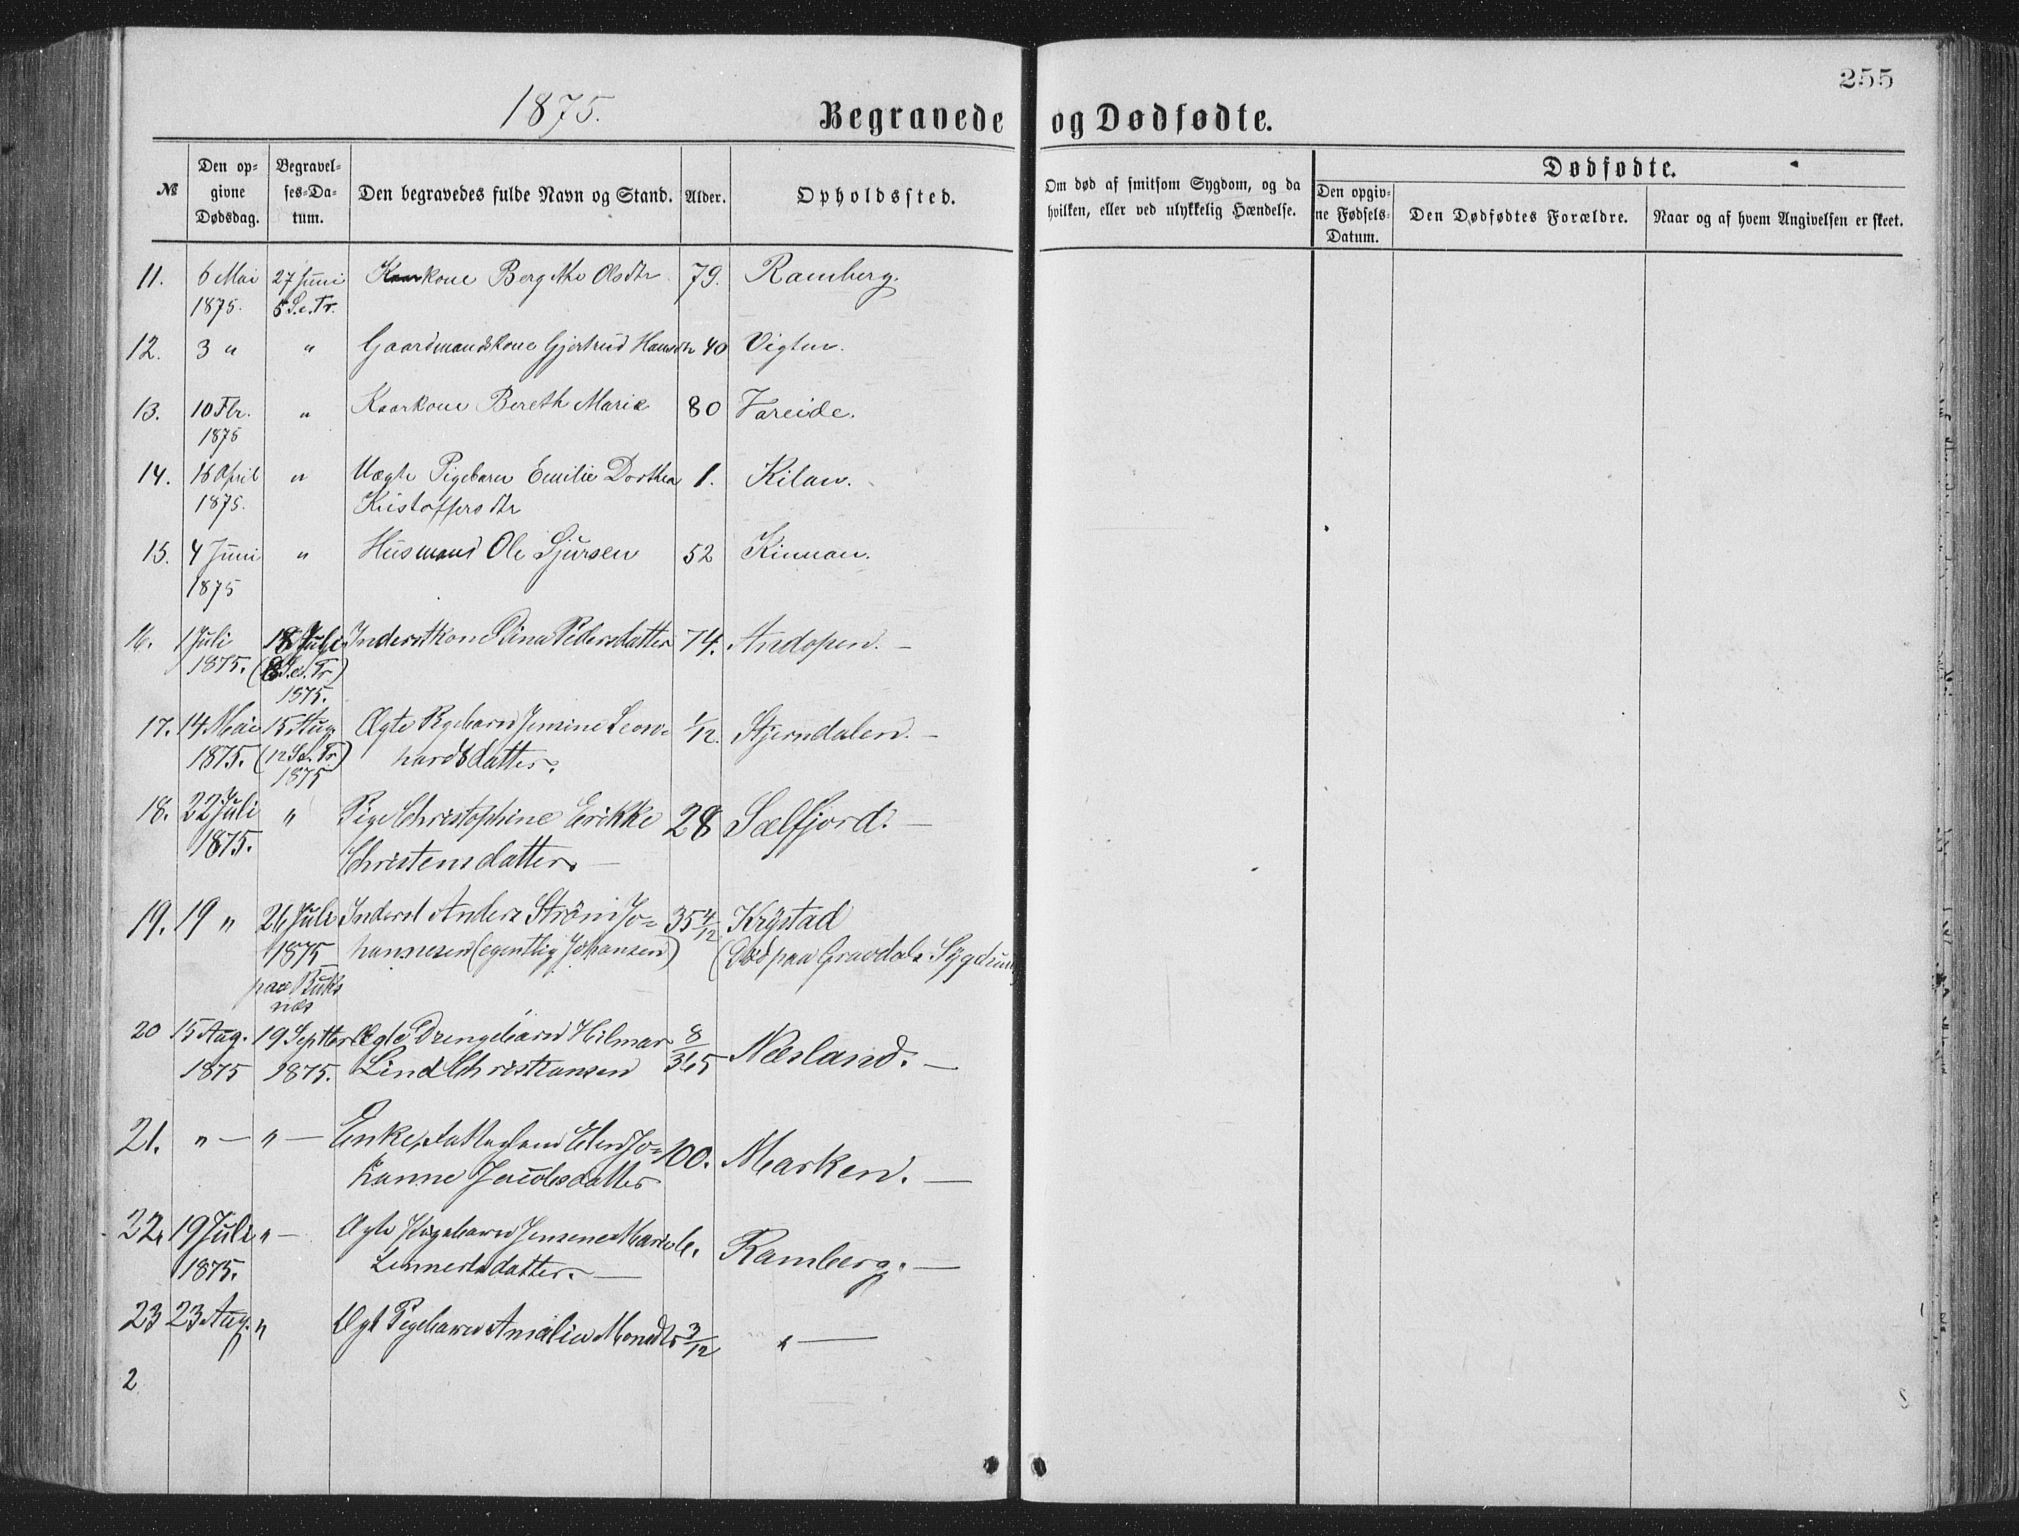 255
1875.
Begravede og Dødfødte.
№
Den opgivne Dødsdag.
Begravelses-Datum.
Den begravedes fulde Navn og Stand.
Alder.
Opholdssted.
Om død af smitsom Sygdom, og da hvilken, eller ved ulykkelig Hændelse.
Dødfødte.
Den opgivne Fødsels-Datum.
Den Dødfødtes Forældre.
Naar og af hvem Angivelsen er skeet.
11. 6 Mai 27 Juni Kaarkone Berg Olsdtr 79. Ramberg.
1875. 5 S.e.Tr.
12. 3 " " Gaardmandskone Gjertrud Hansdtr 40 Vigten.
13. 10 Fbr. " Kaarkone Bereth Marie 80 Vareide.
1875
14. 16 April " Uægte Pigebarn Emilie Dorthea 1. Kilan.
1875. Kristoffersdtr
15. 4 Juni " Husmand Ole Sjursen 52 Kinnan.
1875
16. 1 Juli 18 Juli Inderstkone Dina Pedersdatter 74. Andopen. —
1875. (8 S.e.Tr)
1875.
17. 14 Mai 15 Aug. Ægte Pigebarn Jensine Leon- 1/12. Stjerndalen. —
1875. (12 S.e.Tr) hardsdatter.
1875
18. 22 Juli " Pige Christophine Erikke 28 Sælfjord. —
1875. Christensdatter. —
19. 19 " 26 Juli Inderst Anders Strøm Jo- 35 4/12 Krystad
1875 hannesen (egentlig Johansen) (Død paa Gravdals Sygehus)
paa Buks
næs
20 15 Aug. 19 Septber Ægte Drengebarn Hilmar 8/365 Næsland. —
1875 1875. Lind Christiansen
21. " — " — Enke, Fattiglem Elen Jo- 100. Marken. —
hanne Jacobsdatter
22. 19 Juli " — Ægte Pigebarn Jensine Marie 6. Ramberg. —
1875. Lennertsdatter. —
23 23 Aug. " Ægt Pigebarn Amalie Monsdtr 3/12 " —
2